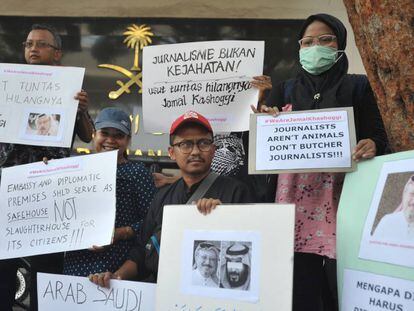 #WeAreJamalKhashoggi
T USUT TUNTAS
HILANGNYA
JURNALISME BUKAN
KEJAHATAN!
usut tuntas hilangnya
Jamal Kashoggi
#WeAreJamalKhashoggi
JOURNALISTS
AREN'T ANIMALS
DON'T BUTCHER
JOURNALISTS!!!
EMBASSY AND DIPLOMATIC
PREMISES SHLD SERVE AS
SAFEHOUSE NOT
SLAUGHTERHOUSE FOR
ITS CITIZENS!!!
ARAB SAUDI
MENGAPA
HARUS